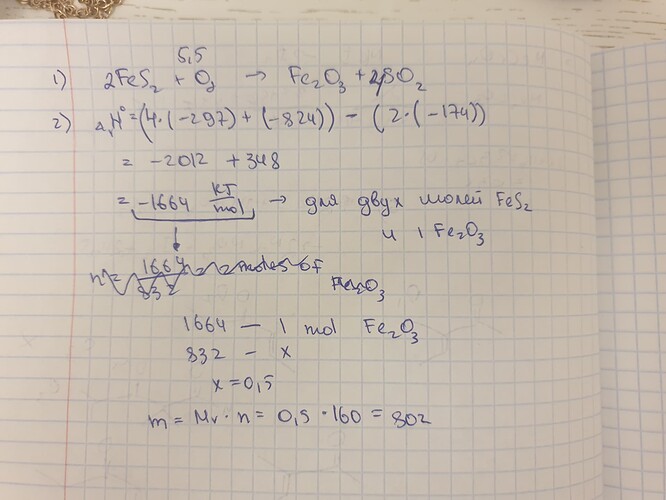 5,5
1) 2FeS₂ + O₂ → Fe₂O₃ + 4SO₂
2) ΔᵣH° = (4·(-297) + (-824)) - (2·(-174))
= -2012 + 348
= -1664 KJ/mol → для двух молей FeS₂
и 1 Fe₂O₃
n = 1664/832 moles of
Fe₂O₃
1664 — 1 mol Fe₂O₃
832 - x
x = 0,5
m = Mr · n = 0,5 · 160 = 80г